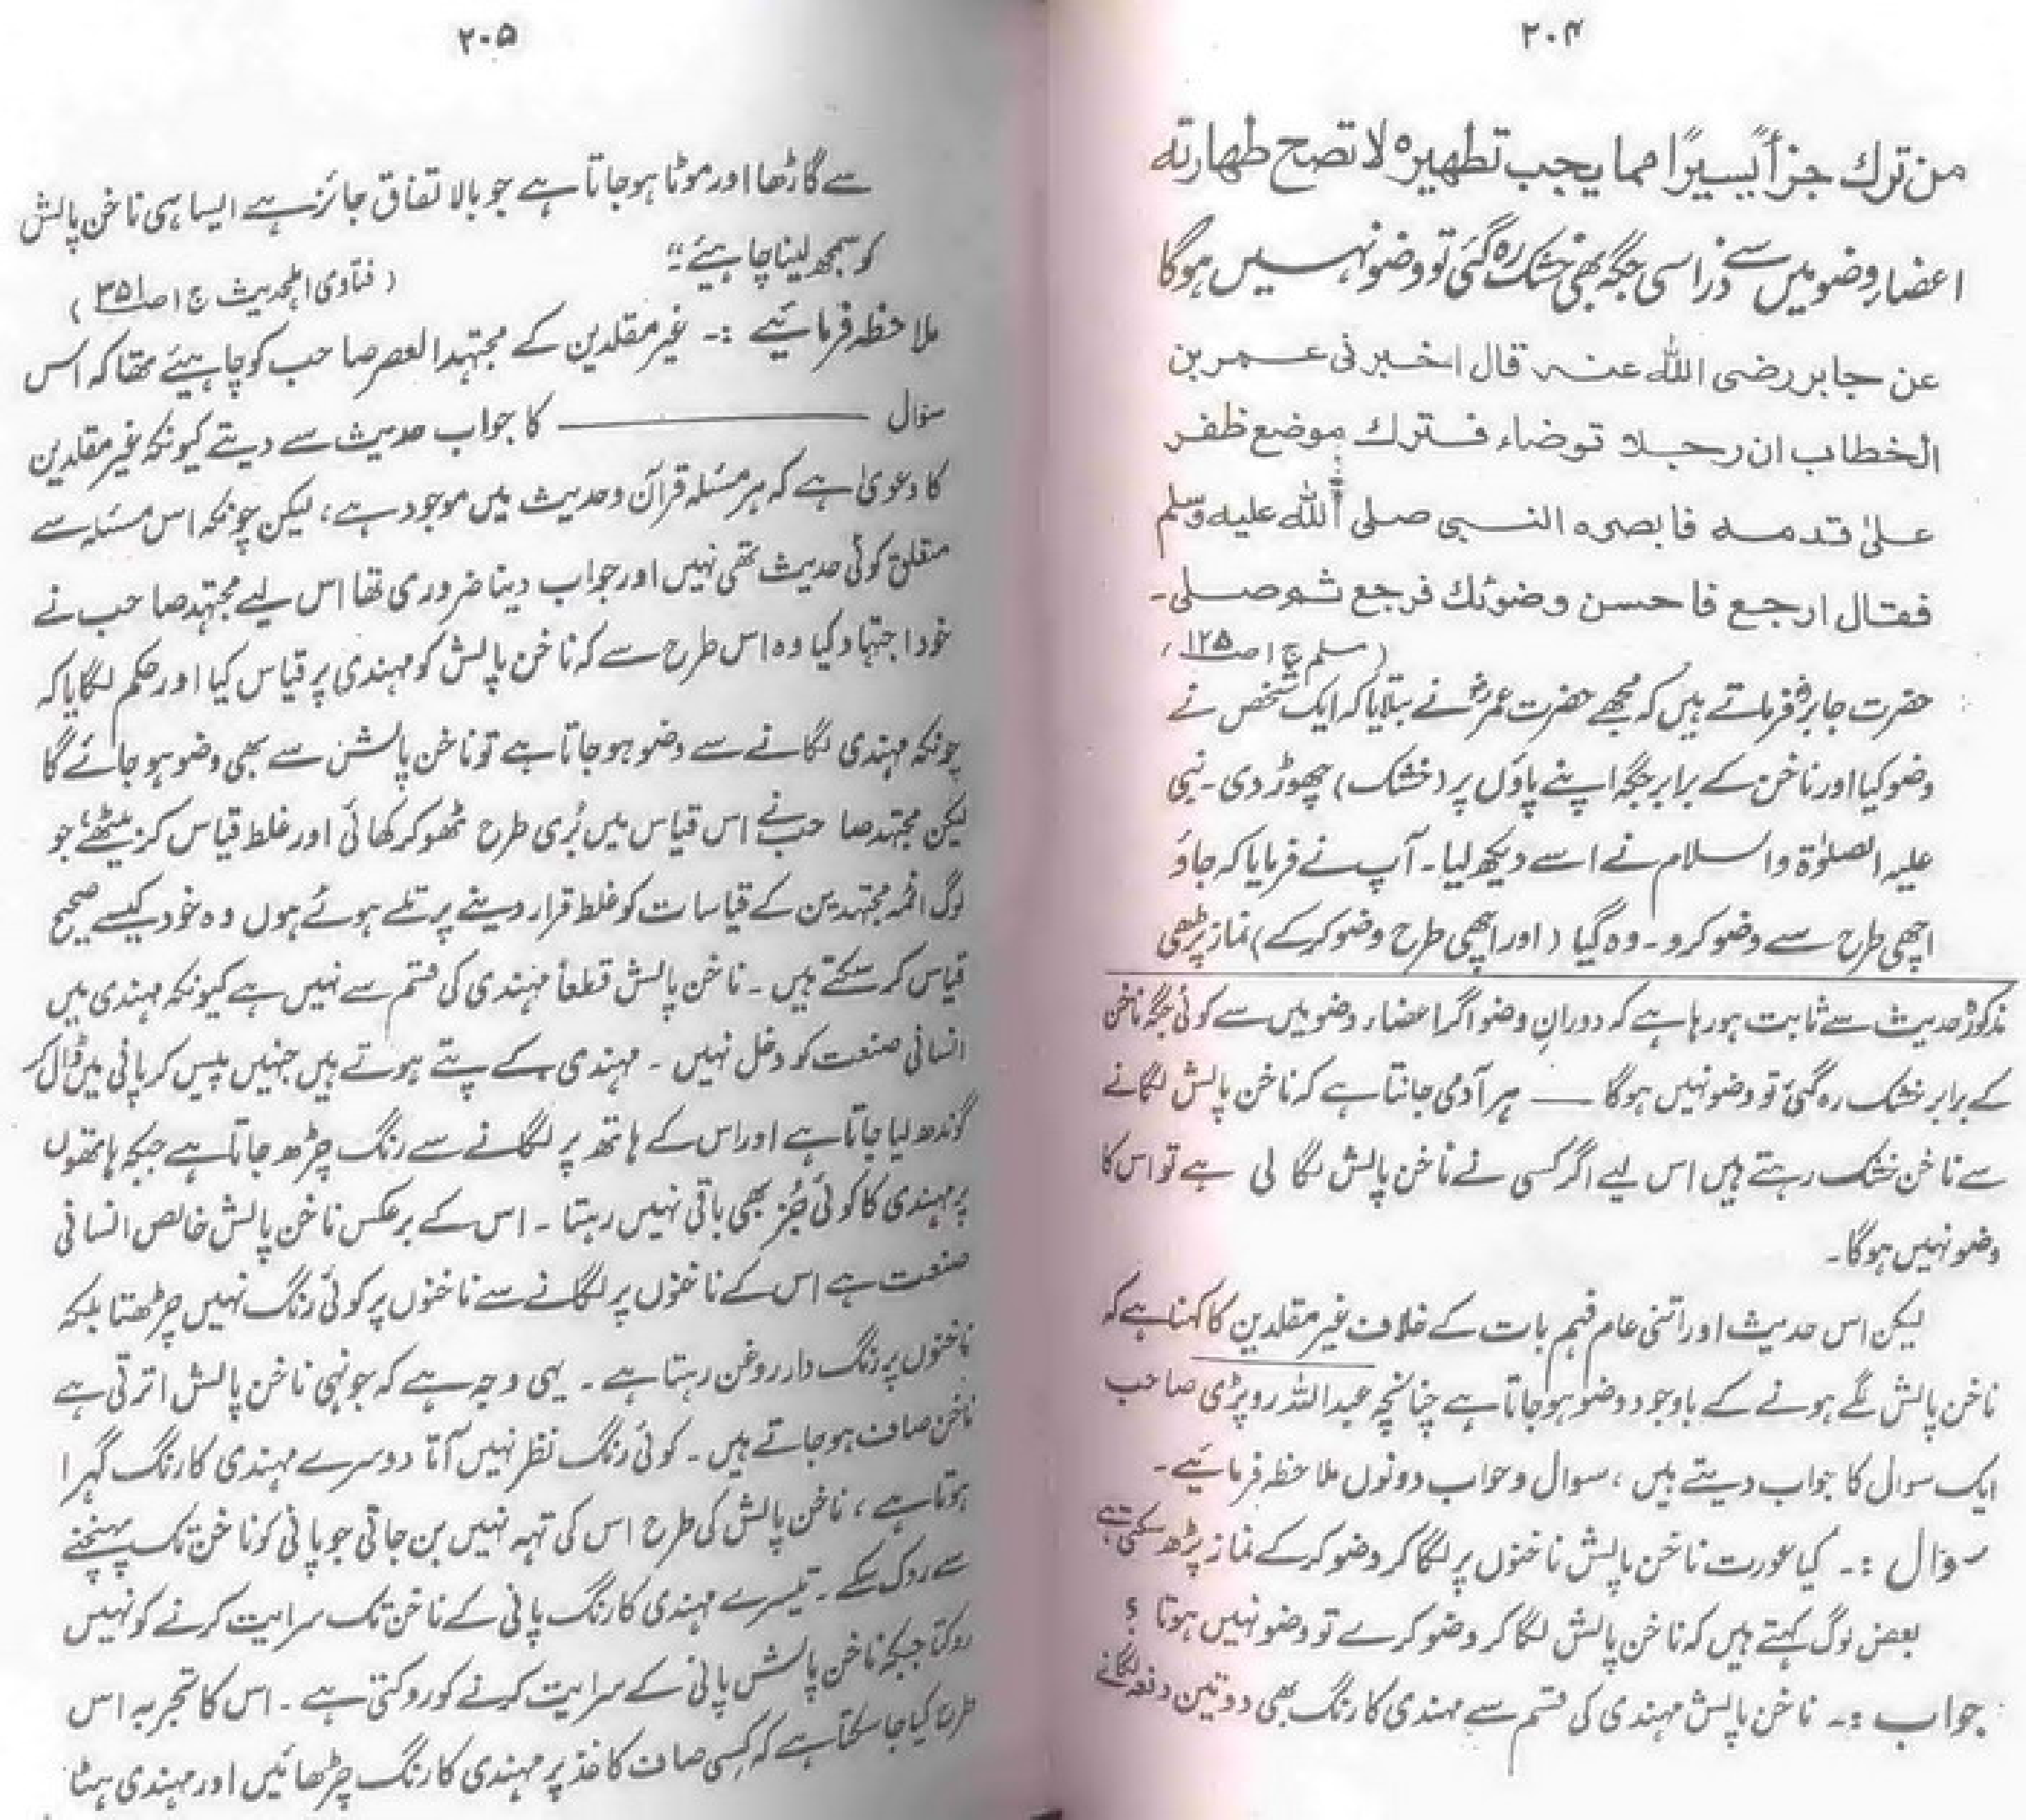 ۲۰۴
من ترك جزأ یسیرًا مما یجب تطهیره لا تصح طهارته
اعضاءِ وضو میں سے ذراسی جگہ بھی خشک رہ گئی تو وضو نہیں ہوگا
عن جابر رضی الله عنه قال اخبرنی عمر بن
الخطاب ان رجلا توضاء فترك موضع ظفر
علیٰ قدمه فابصره النبی صلی الله علیه وسلم
فقال ارجع فاحسن وضوئك فرجع ثم صلی۔
(مسلم ج ۱ ص۱۲۵)
حضرت جابرؓ فرماتے ہیں کہ مجھے حضرت عمرؓ نے بتلایا کہ ایک شخص نے
وضو کیا اور ناخن کے برابر جگہ اپنے پاؤں پر (خشک) چھوڑ دی۔ نبی
علیہ الصلوٰۃ والسلام نے اسے دیکھ لیا۔ آپ نے فرمایا کہ جاؤ
اچھی طرح سے وضو کرو۔ وہ گیا (اور اچھی طرح وضو کرکے) نماز پڑھی
مذکورہ حدیث سے ثابت ہورہا ہے کہ دورانِ وضو اگر اعضاء وضو میں سے کوئی جگہ ناخن
کے برابر خشک رہ گئی تو وضو نہیں ہوگا — ہر آدمی جانتا ہے کہ ناخن پالش لگانے
سے ناخن خشک رہتے ہیں اس لیے اگر کسی نے ناخن پالش لگا لی ہے تو اس کا
وضو نہیں ہوگا۔
لیکن اس حدیث اور اتنی عام فہم بات کے خلاف غیر مقلدین کا کہنا ہے کہ
ناخن پالش لگے ہونے کے باوجود وضو ہوجاتا ہے چنانچہ عبداللہ روپڑی صاحب
ایک سوال کا جواب دیتے ہیں، سوال وجواب دونوں ملاحظہ فرمائیے۔
سوال :۔ کیا عورت ناخن پالش ناخنوں پر لگا کر وضو کرکے نماز پڑھ سکتی ہے
بعض لوگ کہتے ہیں کہ ناخن پالش لگا کر وضو کرے تو وضو نہیں ہوتا ؟
جواب :۔ ناخن پالش مہندی کی قسم سے مہندی کا رنگ بھی دو تین دفعہ لگانے
۲۰۵
سے گاڑھا اور موٹا ہوجاتا ہے جو بالاتفاق جائز ہے ایسا ہی ناخن پالش
کو سمجھ لینا چاہیئے۔“
(فتاوی اہلحدیث ج ۱ ص۳۵۱)
ملاحظہ فرمائیے :۔ غیر مقلدین کے مجتہد العصر صاحب کو چاہیئے تھا کہ اس
سوال ——— کا جواب حدیث سے دیتے کیونکہ غیر مقلدین
کا دعویٰ ہے کہ ہر مسئلہ قرآن وحدیث میں موجود ہے، لیکن چونکہ اس مسئلہ سے
متعلق کوئی حدیث تھی نہیں اور جواب دینا ضروری تھا اس لیے مجتہد صاحب نے
خود اجتہاد کیا وہ اس طرح سے کہ ناخن پالش کو مہندی پر قیاس کیا اور حکم لگایا کہ
چونکہ مہندی لگانے سے وضو ہوجاتا ہے تو ناخن پالش سے بھی وضو ہو جائے گا
لیکن مجتہد صاحب نے اس قیاس میں بُری طرح ٹھوکر کھائی اور غلط قیاس کر بیٹھے، جو
لوگ ائمہ مجتہدین کے قیاسات کو غلط قرار دینے پر تلے ہوئے ہوں وہ خود کیسے صحیح
قیاس کر سکتے ہیں۔ ناخن پالش قطعاً مہندی کی قسم سے نہیں ہے کیونکہ مہندی میں
انسانی صنعت کو دخل نہیں۔ مہندی کے پتے ہوتے ہیں جنہیں پیس کر پانی میں ڈال کر
گوندھ لیا جاتا ہے اور اس کے ہاتھ پر لگانے سے رنگ چڑھ جاتا ہے جبکہ ہاتھوں
پر مہندی کا کوئی جُز بھی باقی نہیں رہتا۔ اس کے برعکس ناخن پالش خالص انسانی
صنعت ہے اس کے ناخنوں پر لگانے سے ناخنوں پر کوئی رنگ نہیں چڑھتا بلکہ
ناخنوں پر رنگ دار روغن رہتا ہے۔ یہی وجہ ہے کہ جونہی ناخن پالش اترتی ہے
ناخن صاف ہوجاتے ہیں۔ کوئی رنگ نظر نہیں آتا دوسرے مہندی کا رنگ گہرا
ہوتا ہے، ناخن پالش کی طرح اس کی تہہ نہیں بن جاتی جو پانی کو ناخن تک پہنچنے
سے روک سکے۔ تیسرے مہندی کا رنگ پانی کے ناخن تک سرایت کرنے کو نہیں
روکتا جبکہ ناخن پالش پانی کے سرایت کرنے کو روکتی ہے۔ اس کا تجربہ اس
طرح کیا جا سکتا ہے کہ کسی صاف کاغذ پر مہندی کا رنگ چڑھائیں اور مہندی ہٹا